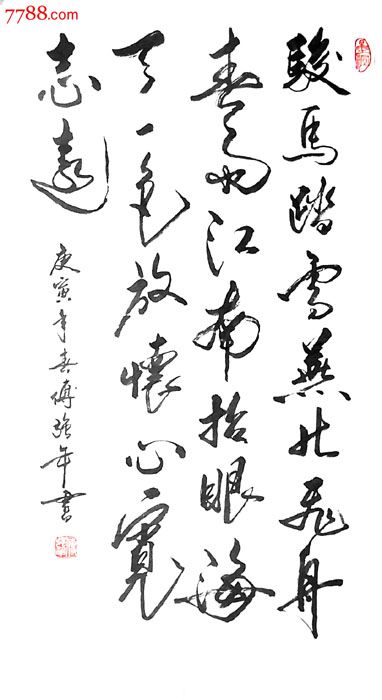 7788.com
駿馬踏雪燕北飛舟
春雨江南抬眼海
天一色放懷心寬
志遠
庚寅年春傅強年書